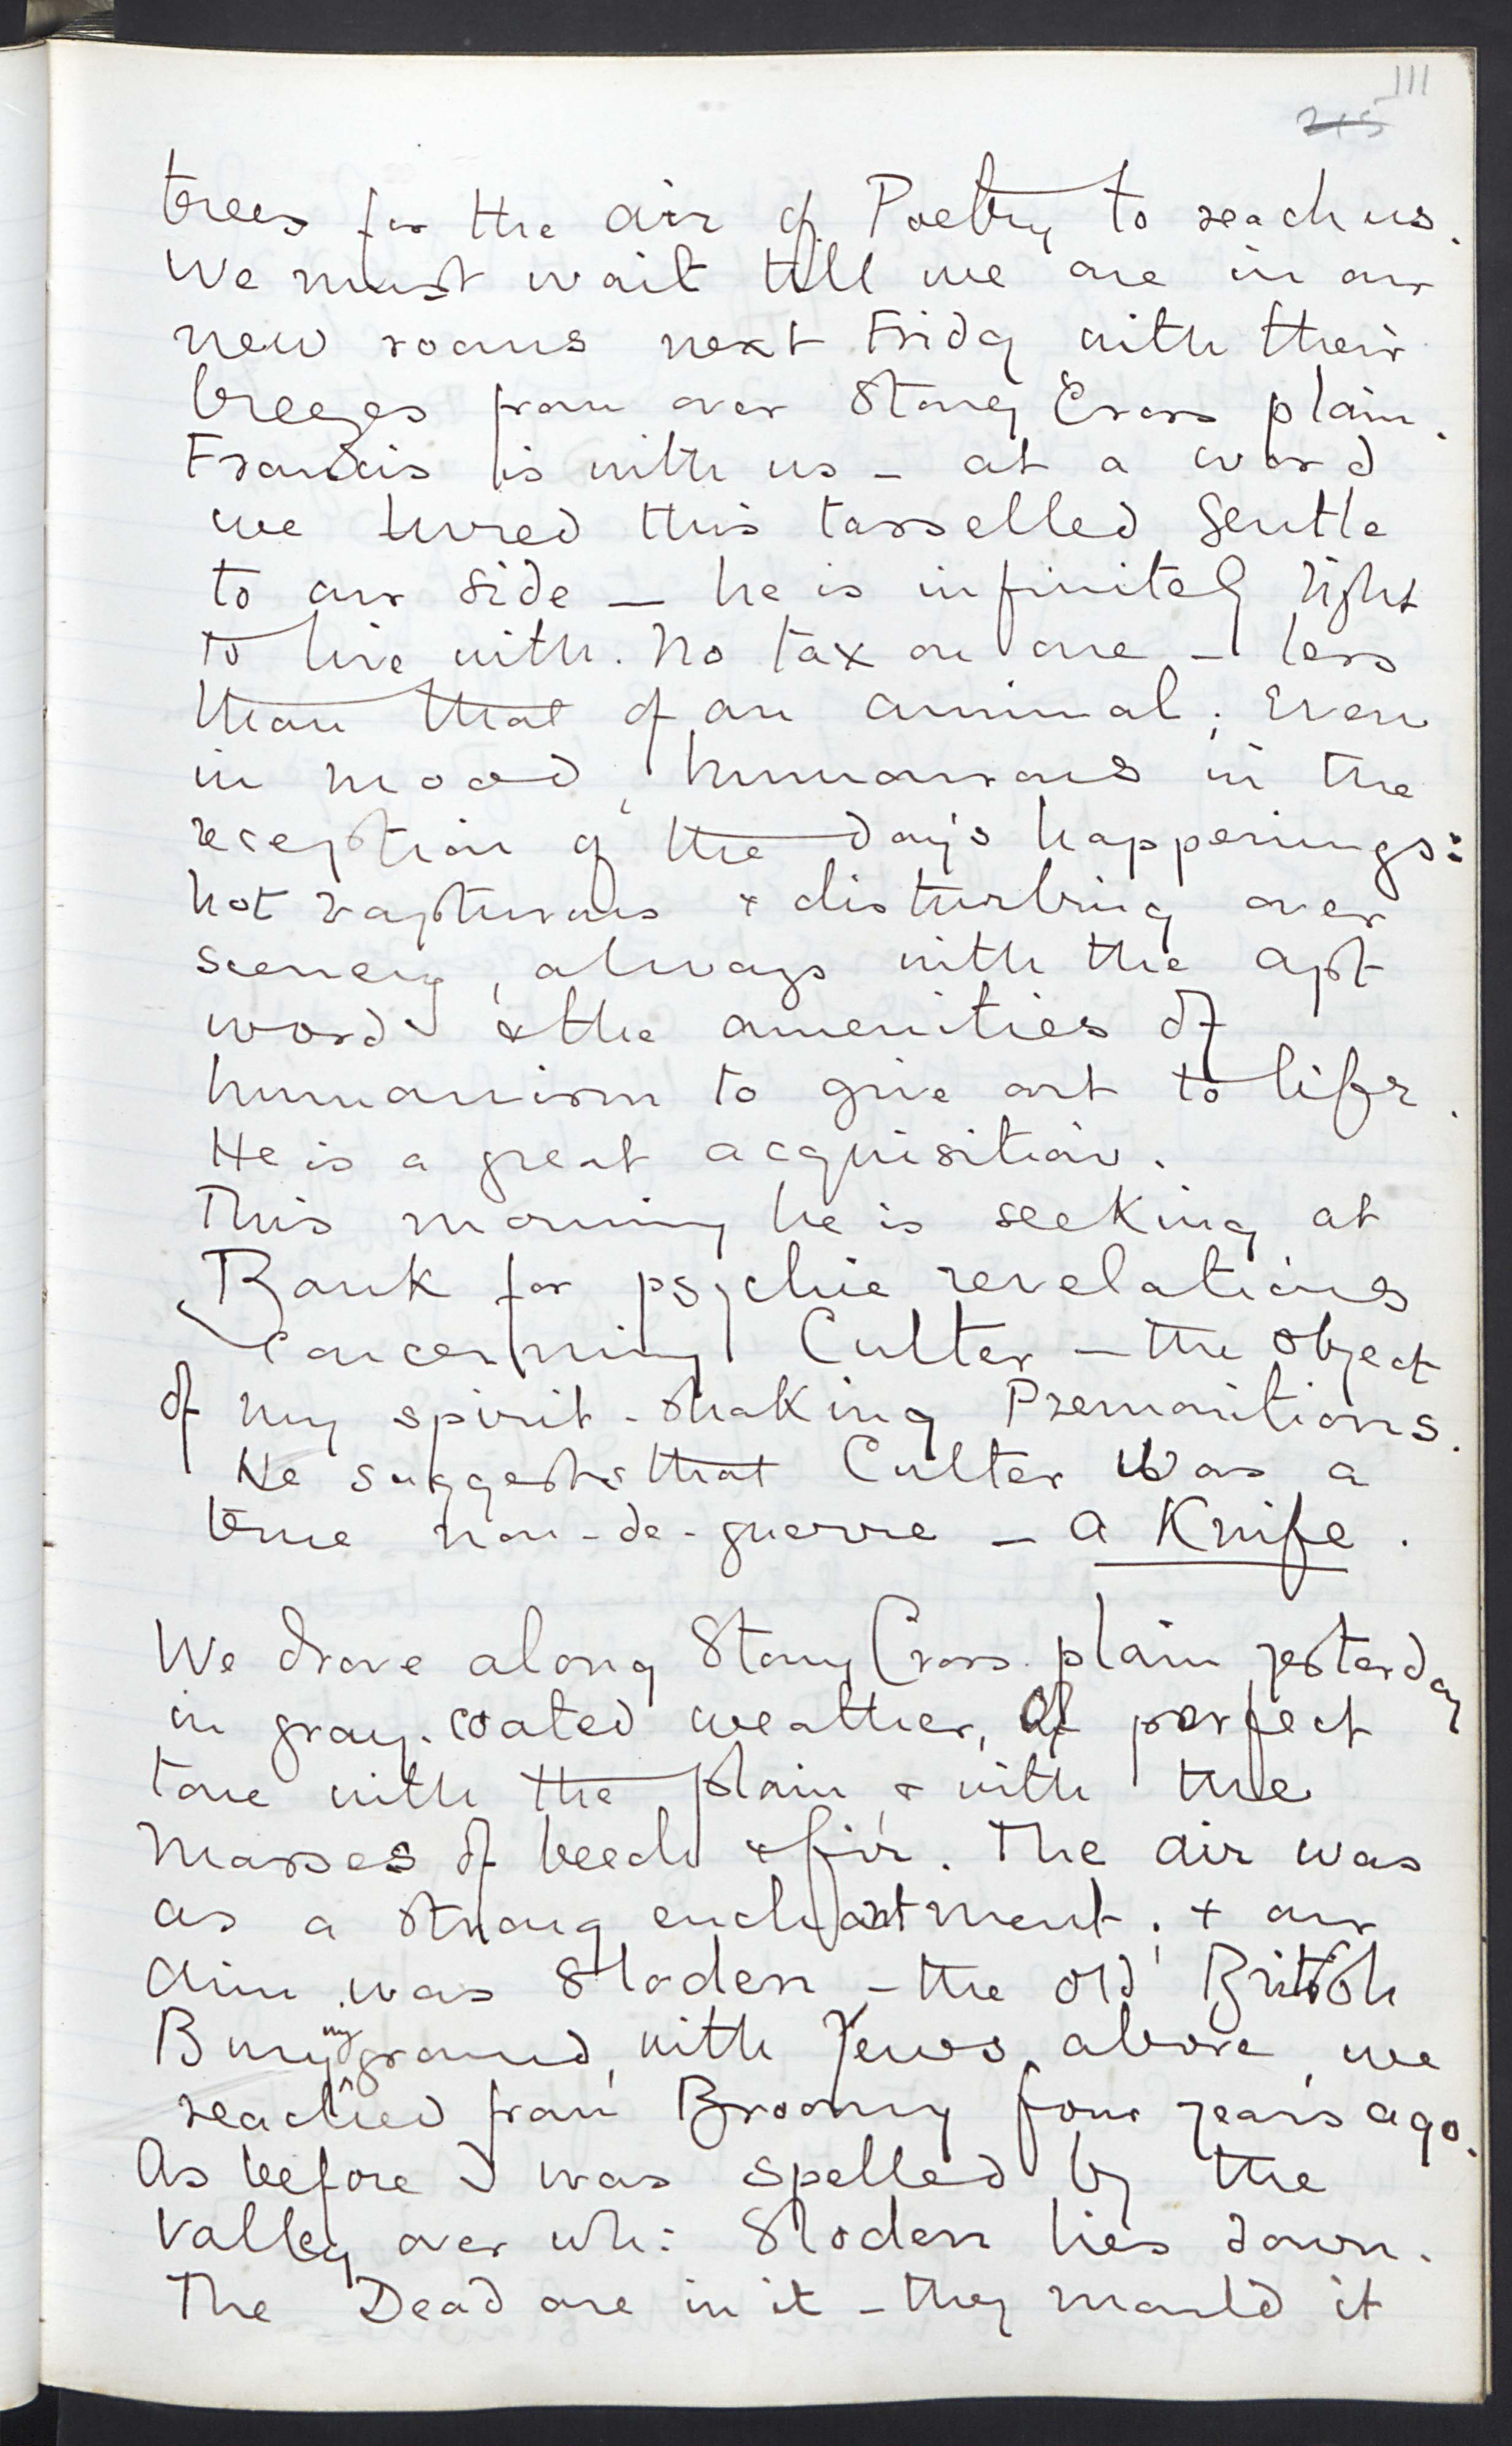 111
215
trees for the air of Poetry to reach us.
We must wait till we are in our
new rooms next Friday with their
breezes from over Stoney Cross plain.
Francis is with us – at a word
we lured this tasselled gentle
to our side – he is infinitely light
to live with. No tax on one – less
than that of an animal; Even
in mood, humourous in the
reception of the day's happenings:
not rapturous & disturbing over
scenery, always with the apt
word & the amenities of
humanism to give art to life.
He is a great acquisition.
This morning he is seeking at
Bank for psychic revelations
concerning Culter – the object
of my spirit-shaking Premonitions.
He suggests that Culter was a
true nom-de-guerre – a Knife.
We drove along Stony Cross plain yesterday
in gray-coated weather, of perfect
tone with the plain & with the
masses of beech & fir. The air was
as a strong enchantment; & our
aim was Sloden – the old British
Burying ground, with Yews above, we
reached from Broomy four years ago.
As before I was spelled by the
valley over wh: Sloden lies down.
The Dead are in it – they mould it